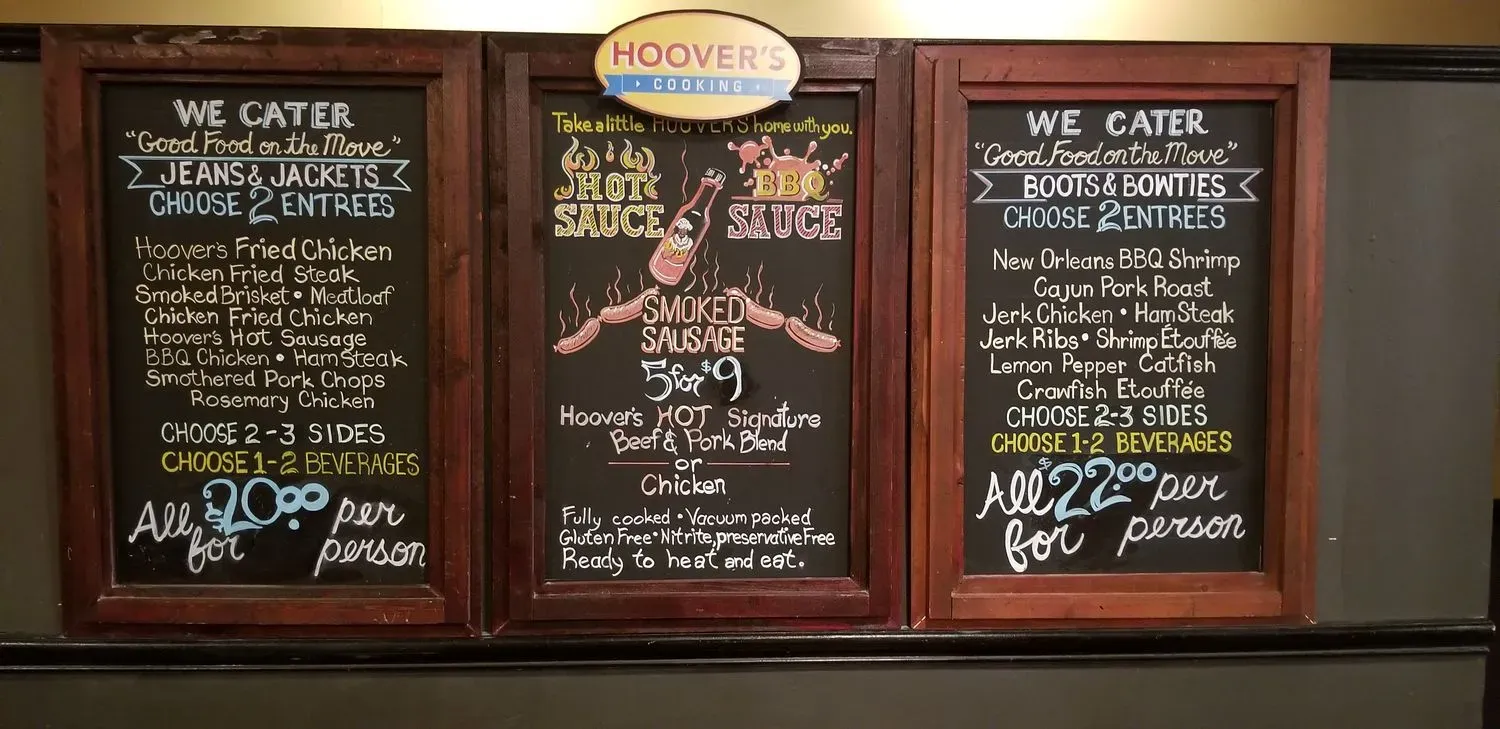 WE CATER
"Good Food on the Move"
JEANS & JACKETS
CHOOSE 2 ENTREES
Hoover's Fried Chicken
Chicken Fried Steak
Smoked Brisket • Meatloaf
Chicken Fried Chicken
Hoover's Hot Sausage
BBQ Chicken • Ham Steak
Smothered Pork Chops
Rosemary Chicken
CHOOSE 2-3 SIDES
CHOOSE 1-2 BEVERAGES
All for $20.00 per person
HOOVER'S
COOKING
Take a little HOOVER'S home with you.
HOT
SAUCE
BBQ
SAUCE
SMOKED
SAUSAGE
5 for $9
Hoover's HOT Signature
Beef & Pork Blend
or
Chicken
Fully cooked • Vacuum packed
Gluten Free • Nitrite, preservative Free
Ready to heat and eat.
WE CATER
"Good Food on the Move"
BOOTS & BOWTIES
CHOOSE 2 ENTREES
New Orleans BBQ Shrimp
Cajun Pork Roast
Jerk Chicken • Ham Steak
Jerk Ribs • Shrimp Étouffée
Lemon Pepper Catfish
Crawfish Etouffée
CHOOSE 2-3 SIDES
CHOOSE 1-2 BEVERAGES
All for $22.00 per person